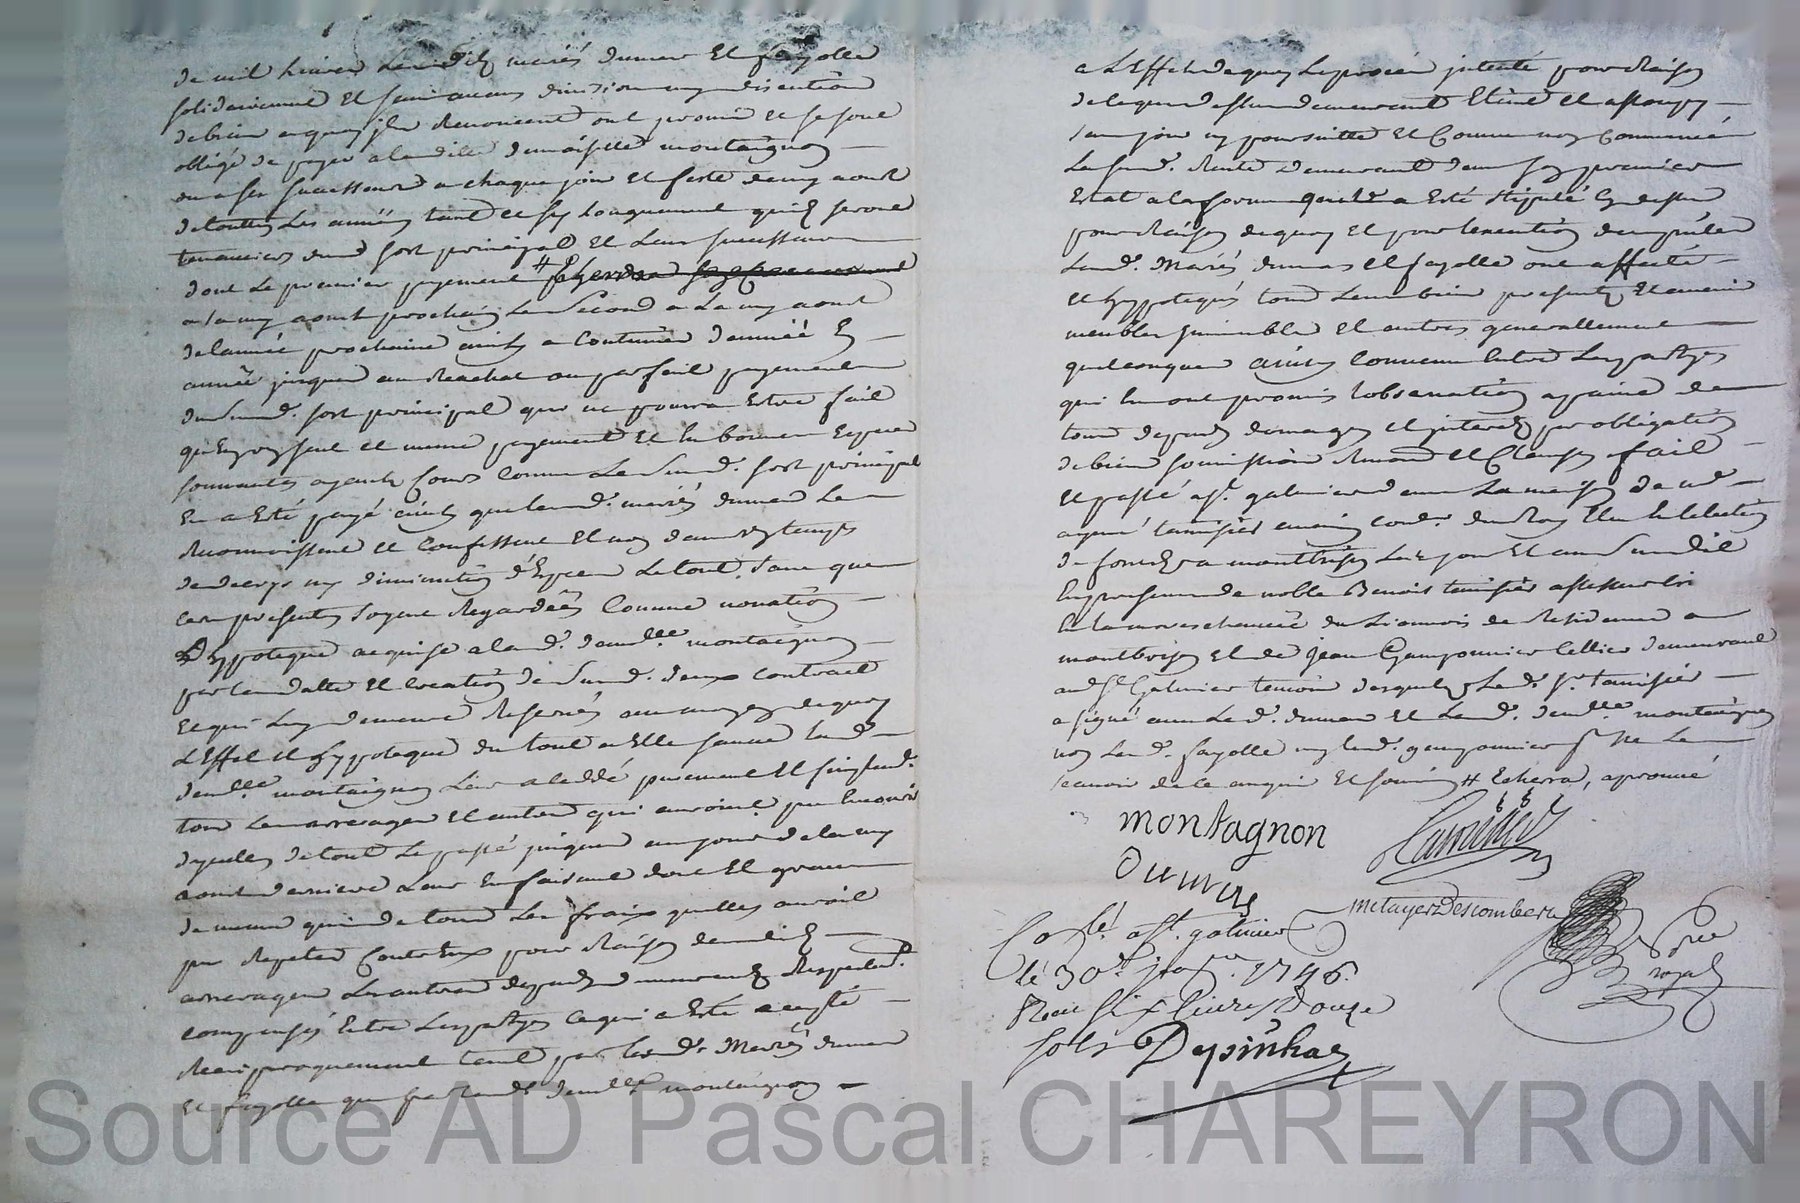 de mil livres lesdits mariés dumas Et fayolle
solidairement Et sans aucune division ny discution
de biens a quoy ils Renoncent ont promis et se sont
obligé de payer a laditte demoiselle montaignon
ou a ses successeurs a chaque jour et feste de my aoust
de touttes Les années tant et sy longuement quils seront
tenanciers dud sort principal et Leurs successeurs
dont Le premier payement #
a la my aoust prochain Le second a La my aoust
de lannée prochaine ainsy a Continuer dannée En
année jusques au Rachat ou parfait payement
du susd. sort principal qui ne pourra Estre fait
quen un seul et meme payement Et En bonnes Especes
sonnantes ayant Cours Comme Le susd. sort principal
En a Esté payé ainsy que lesd. mariés dumas Le
Reconnoissent et Confessent Et non dans un temps
de decry ny diminution dEspeces Le tout sans que
ces presentes soyent Regardées Comme novation
dhyppoteque acquise a lad. damlle montaignon
par les datte Et Creation de susd. deux Contract
Et qui Luy demeure Reservés au moyen de quoy
LEffet Et hyppoteque du tout a Elle sauve lad.
demlle montaignon Leur a ceddé purement Et simplemt.
tous Les arrerages Et autres qui auroient pu Encourir
depuis de tout Le passé jusques au jour de la my
aoust derniere Leur En faisant don Et grace
de meme que de tous Les fraix quelle auroit
pu Repeter Contreux pour Raison desdits
arrerages Les autres depends demeurants Respectivt.
compensés Entre Lesparties Ce qui a Esté accepté
Reciproquement tant par lesd. Mariés dumas
Et fayolle que par lad. demlle montaignon
a LEffet de quoy Le procès intenté pour Raison
de ce que dessus demeurant Eteint et assoupy
sans jour ny poursuitte Et Comme non Commencé
La susd. Rente demeurant dans son premier
Estat a la forme quelle a Esté stipulé Cy dessus
pour Raison de quoy Et pour lexecution des présentes
Lesd. Mariés dumas Et fayolle ont affecté
et hyppotequés tous Leurs biens presents Et avenir
meubles immeubles Et autres generallement
quelconques ainsy Convenu Entre Lesparties
qui En ont promis lobservation a paine de
tous depends domages et interets par obligation
de biens soumission Renon et Clauses fait
Et passé a St. galmier dans La maison de
aymé tamisier ancien Cons. du Roy Elu En lElection
de forest a montbrison Les jour et an susdit
En presence de noble Benoist tamisier assesseur
En la mareschaussée du Lionnois de Residence a
montbrison Et de jean Gamponnier Cellier demeurant
aud St Galmier temoins desquels Led. Sr. tamisier
a signé avec Led. dumas Et Lad. demlle. montaignon
non Lad. fayolle ny led. gamponnier pr ne Le
scavoir de ce enquis Et sommés # Echerra, aprouvé
montagnon
tamisier
Dumas
metayer Descombes
Nore royal
Conlé. a St. galmier
le 30e. 1746.
Recu six livres Douze
sols Depinhac
Source AD Pascal CHAREYRON